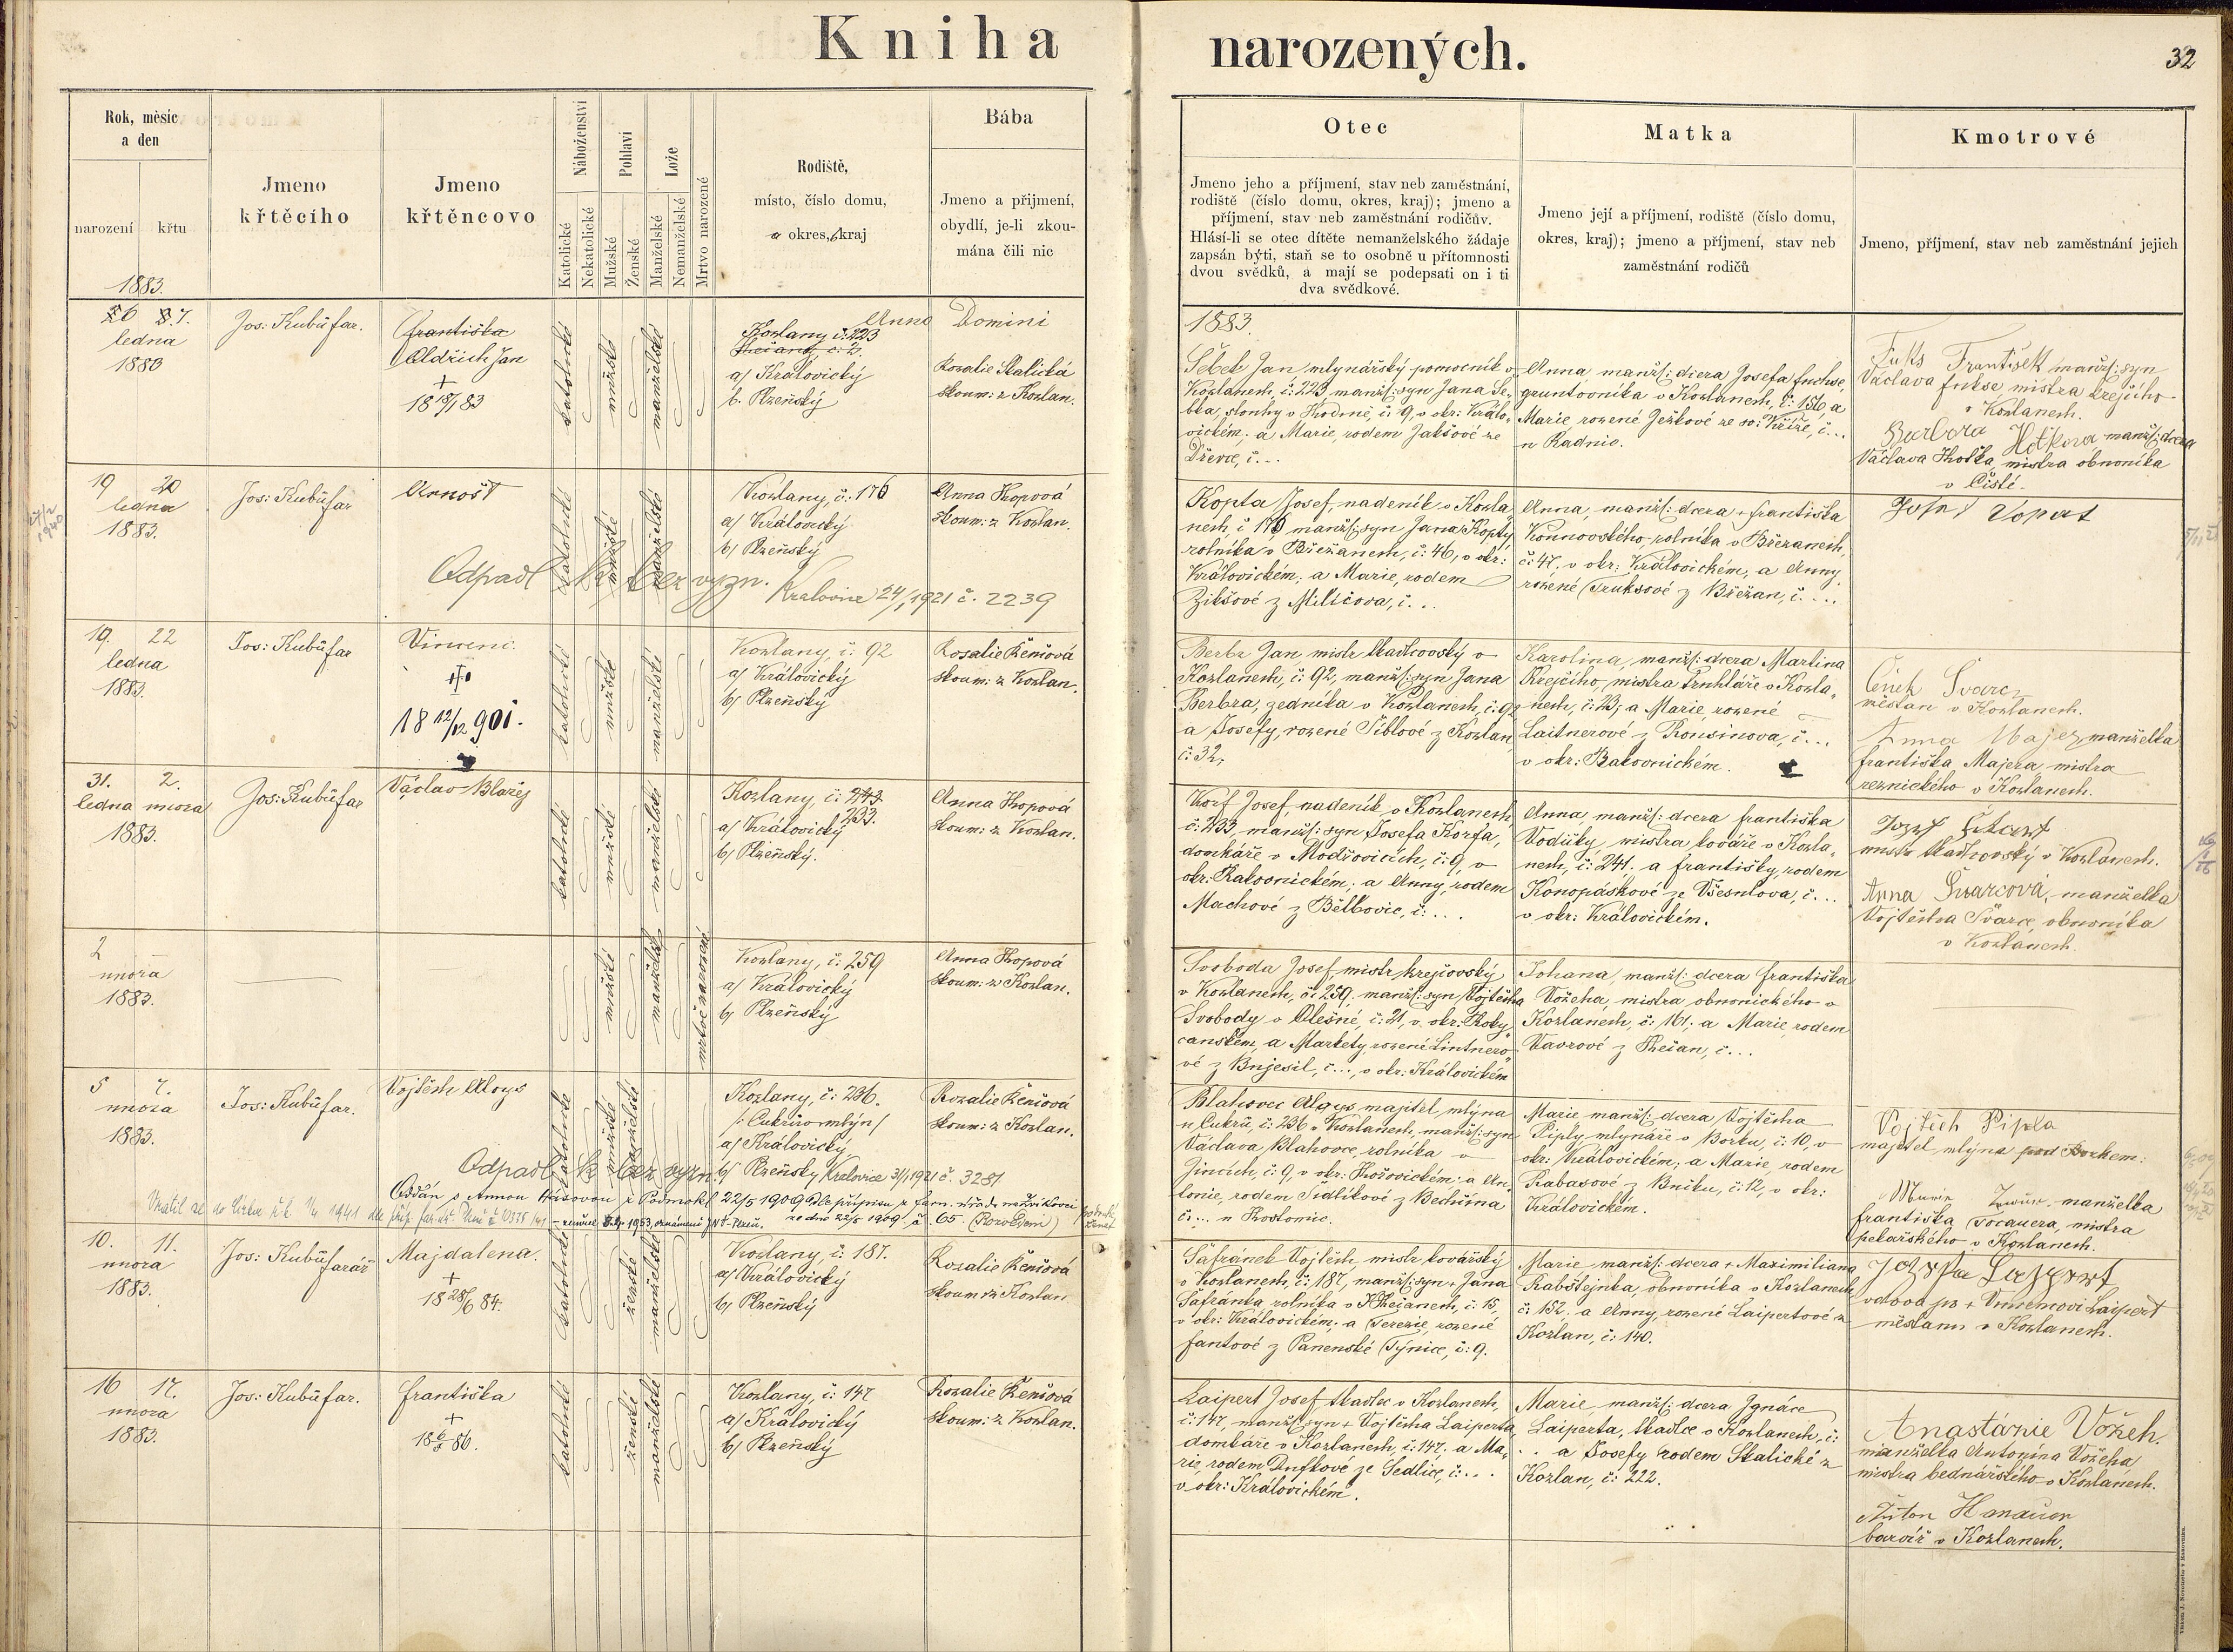 Kniha narozených.
32
Rok, měsíc
a den
narození
křtu
1883.
Jmeno
křtěcího
Jmeno
křtěncovo
Náboženství
Katolické
Nekatolické
Pohlaví
Mužské
Ženské
Lože
Manželské
Nemanželské
Mrtvo narozené
Rodiště,
místo, číslo domu,
okres, kraj
Bába
Jmeno a přijmení,
obydlí, je-li zkou-
mána čili nic
Otec
Jmeno jeho a příjmení, stav neb zaměstnání,
rodiště (číslo domu, okres, kraj); jmeno a
příjmení, stav neb zaměstnání rodičův.
Hlásí-li se otec dítěte nemanželského žádaje
zapsán býti, staň se to osobně u přítomnosti
dvou svědků, a mají se podepsati on i ti
dva svědkové.
Matka
Jmeno její a příjmení, rodiště (číslo domu,
okres, kraj); jmeno a příjmení, stav neb
zaměstnání rodičů
Kmotrové
Jmeno, příjmení, stav neb zaměstnání jejich
Anno Domini
1883.
ledna
1883
Jos: Kubů far.
Františka
Oldřich Jan
+
18 18/1 83
katolické
mužské
manželské
Kozlany č: 223
a/ Královický
b. Plzeňský
Rozalie Skalická
skoum: z Kozlan.
Šebek Jan mlynářský pomocník v
Kozlanech, č: 223, manžl: syn Jana Še-
bka, slouhy v Hodyně, č: 9, v okr: Králo-
vickém; a Marie, rodem Jakšové ze
Dřevce, č...
Anna, manžl: dcera Josefa Fuchse,
gruntovníka v Kozlanech, č: 156 a
Marie, rozené Ježkové ze sv: Kříže, č...
u Radnic.
Fuks František manžl: syn
Václava Fukse mistra krejčího
v Kozlanech.
Barbora manžl: dcera
Václava mistra obuvníka
v Čisté.
19 20
ledna
1883.
Jos: Kubů far
Arnošt
katolické
mužské
manželské
Kozlany, č: 176
a/ Královický
b/ Plzeňský
Anna Kopová
skoum: z Kozlan.
Odpadl k bez vyzn. Kralovice 24/1 1921 č. 2239
Kopta Josef, nadeník v Kozla-
nech, č 176 manžl: syn Jana Kopty
rolníka v Břežanech, č: 46, v okr:
Královickém; a Marie, rodem
Zikšové z Milíčova, č...
Anna, manžl: dcera + Františka
Kounovského rolníka v Břežanech,
č: 47. v okr: Královickém; a Anny
rozené Truksové z Břežan, č....
19. 22
ledna
1883.
Jos: Kubů far
Vincenc.
18 12/12 901.
katolické
mužské
manželské
Kozlany, č: 92
a/ Královický
b/ Plzeňský
Rosalie Řenčová
skoum: z Kozlan.
Berbr Jan, mistr tkadlcovský v
Kozlanech, č: 92, manžl: syn Jana
Berbra, zedníka v Kozlanech, č: 92
a Josefy, rozené Šiblové z Kozlan
č: 32.
Karolina, manžl: dcera Martina
Krejčího, mistra truhláře v Kozla-
nech, č: 23; a Marie, rozené
Laitnerové z Ronsinova, č...
v okr: Rakovnickém.
Čeněk Švarc
měšťan v Kozlanech.
Anna Majer manželka
Františka Majera mistra
řeznického v Kozlanech.
31. 2.
ledna února
1883.
Jos: Kubů far
Václav Blažej
katolické
mužské
manželské
Kozlany, č: 243
233.
a/ Královický
b/ Plzeňský.
Anna Kopová
skoum: z Kozlan.
Korf Josef, nadeník v Kozlanech
č: 233, manžl: syn Josefa Korfa,
domkáře v Modřovicích, č: 9, v
okr: Rakovnickém; a Anny, rodem
Machové z Bělbovic, č:....
Anna, manžl: dcera Františka
Vodičky, mistra kováře v Kozla-
nech, č: 241, a Františky, rodem
Konopáskové ze Všesulova, č...
v okr: Královickém.
mistr tkadlcovský v Kozlanech.
Anna Švarcová, manželka
Vojtěcha Švarce, obuvníka
v Kozlanech.
2
února
1883.
mužské
manželské
mrtvě narozené
Kozlany, č: 259
a/ Královický
b/ Plzeňský
Anna Kopová
skoum: z Kozlan.
Svoboda Josef, mistr krejčovský
v Kozlanech, č: 259. manžl: syn Vojtěcha
Svobody v Olešné, č: 21, v okr: Roky-
canském, a Markéty, rozené Lintnero-
vé z Bujesil, č..., v okr: Královickém
Johana, manžl: dcera Františka
Vožeha, mistra obuvnického v
Kozlanech, č: 161; a Marie, rodem
Vavrové z Hečan, č...
5 7.
února
1883.
Jos: Kubů far.
Vojtěch Aloys
katolické
mužské
manželské
Kozlany, č: 236.
/: Cukrův mlýn/
a/ Královický,
b/ Plzeňský
Rozalie Řenčová
skoum: z Kozlan.
Odpadl k bez vyzn. Kralovice 3/1 1921 č. 3281
Oddán s Annou 22/5 1909
Blahovec Aloys majitel mlýna
u Cukrů, č: 236 v Kozlanech, manžl: syn
Václava Blahovce, rolníka v
Jincích, č: 9, v okr: Hořovickém; a An-
tonie, rodem Šidlíkové z Bechčína
č:... u Hostomic.
Marie manžl: dcera Vojtěcha
Piply mlynáře v Borku, č: 10, v
okr: Královickém; a Marie, rodem
Rabasové z Bníku, č: 12, v okr:
Královickém.
Vojtěch Pipla
majitel mlýna pod Borkem.
manželka
Františka Tocauera, mistra
pekařského v Kozlanech.
10. 11.
února
1883.
Jos: Kubů farář
Majdalena.
+
18 28/6 84.
katolické
ženské
manželské
Kozlany, č: 187.
a/ Královický
b/ Plzeňský
Rozalie Řenčová
skoum: z Kozlan
Šafránek Vojtěch, mistr kovářský
v Kozlanech, č: 187, manžl: syn + Jana
Šafránka, rolníka v Hečanech, č: 15,
v okr: Královickém; a Terezie, rozené
Fantové z Panenské Týnice, č: 9.
Marie manžl: dcera + Maximiliana
Rabštejnka, obuvníka v Kozlanech
č: 152. a Anny, rozené Laipertové z
Kozlan, č: 140.
vdova po + Vincencovi Laipert
měšťanu v Kozlanech.
16 17.
února
1883.
Jos: Kubů far.
Františka
+
18 6/5 86.
katolické
ženské
manželské
Kozlany, č: 147
a/ Královický
b/ Plzeňský
Rozalie Řenčová
skoum: z Kozlan.
Laipert Josef tkadlec v Kozlanech,
č: 147, manžl: syn + Vojtěcha Laiperta,
domkáře v Kozlanech, č: 147. a Ma-
rie, rodem Dufkové ze Sedlice, č:...
v okr: Královickém.
Marie, manžl: dcera Ignáce
Laiperta, tkadlce v Kozlanech, č:
.. a Josefy rodem Skalické z
Kozlan, č: 222.
Anastázie Vožeh.
manželka Antonína Vožeha
mistra bednářského v Kozlanech.
Anton
barvíř v Kozlanech.